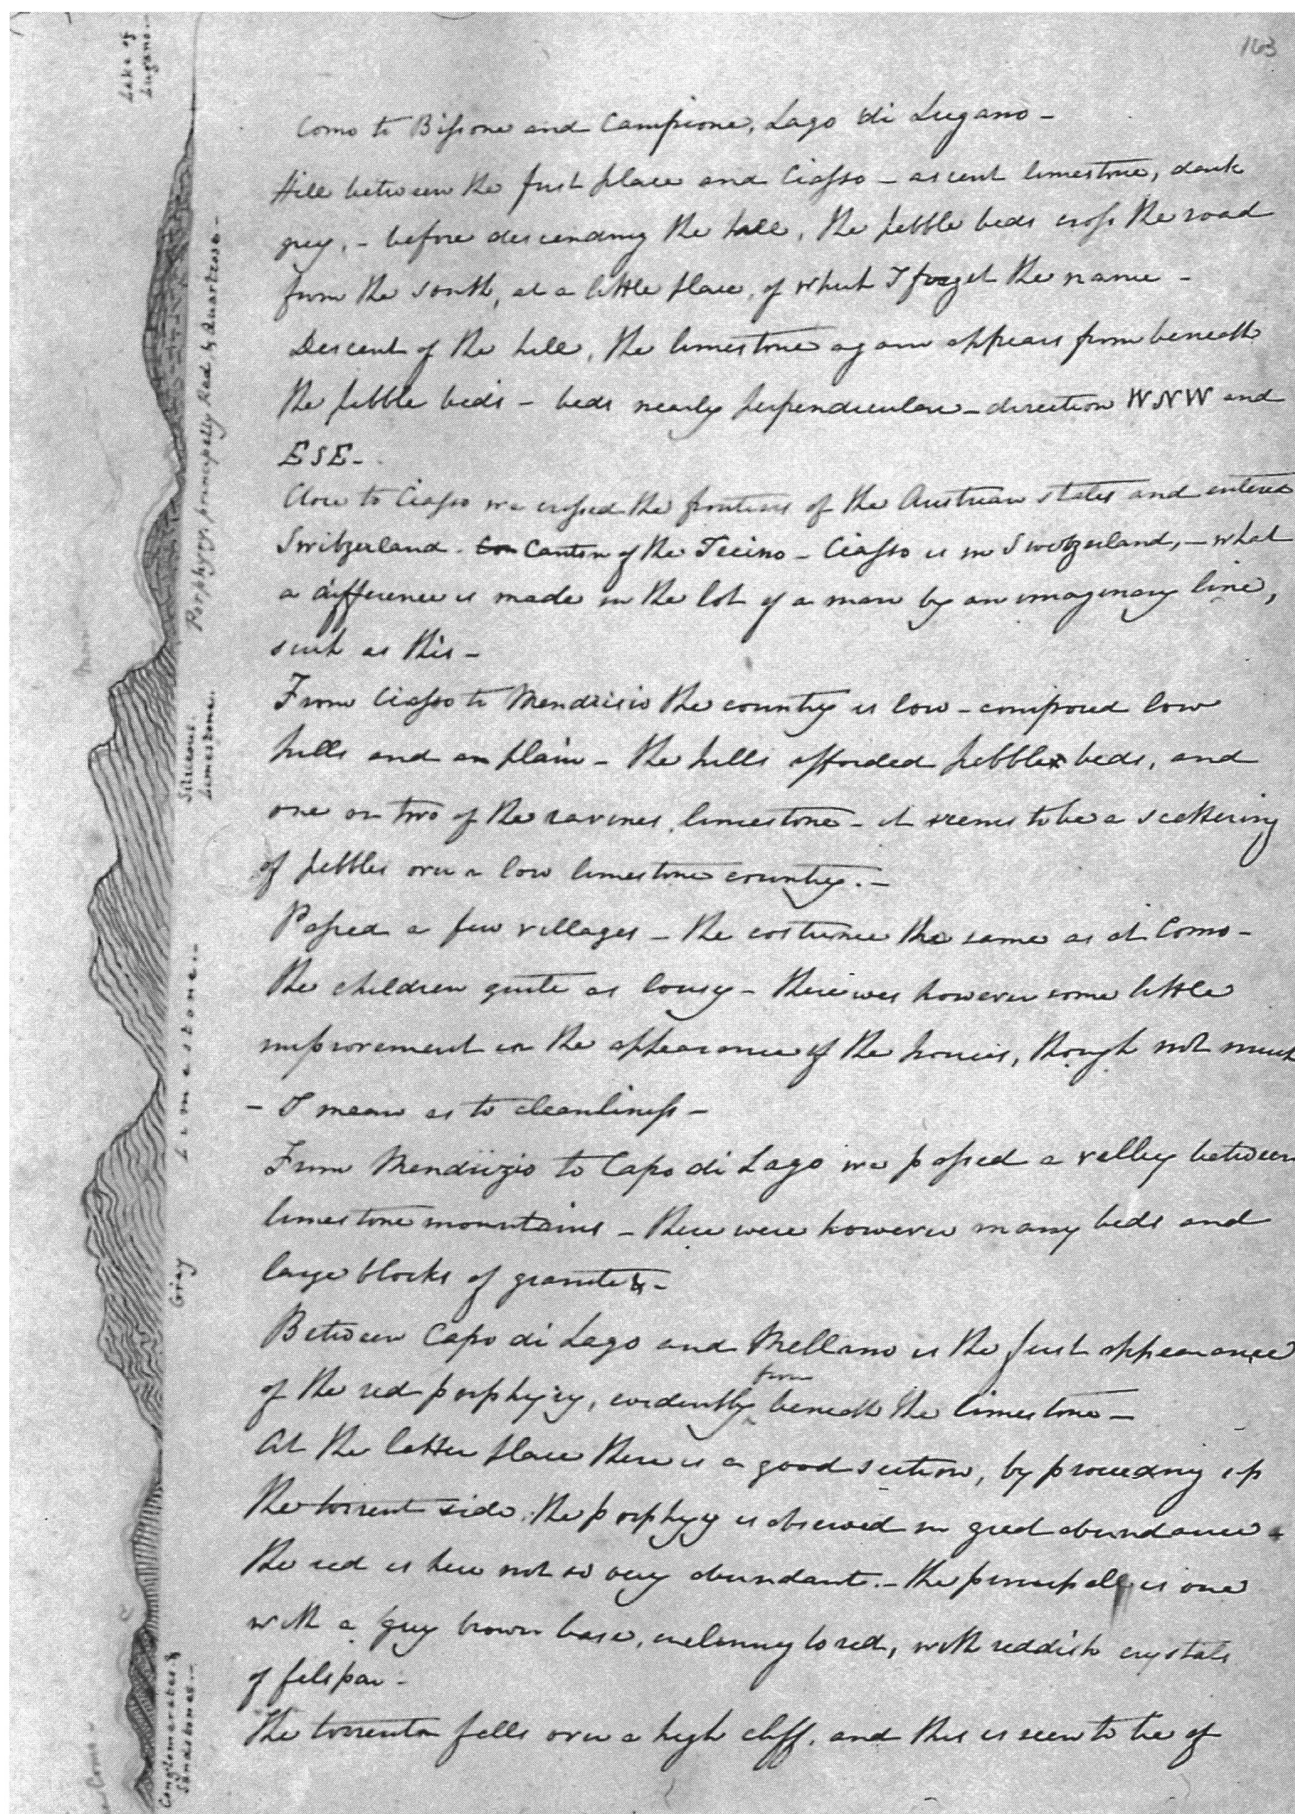 163
Como to Bissone and Campione, Lago di Lugano -
Hill between the first place and Ciasso - ascent limestone, dark
grey, - before descending the hill, the pebble beds cross the road
from the south, at a little place, of which I forget the name -
Descent of the hill, the limestone again appears from beneath
the pebble beds - beds nearly perpendicular - direction WNW and
ESE -
Close to Ciasso we crossed the frontiers of the Austrian states and entered
Switzerland. Canton of the Tecino - Ciasso is in Switzerland, - what
a difference is made in the lot of a man by an imaginary line,
such as this -
From Ciasso to Mendrisio the country is low - composed low
hills and a plain - the hills afforded pebble beds, and
one or two of the ravines, limestone - it seems to be a scattering
of pebbles over a low limestone country. -
Passed a few villages - the costume the same as at Como -
the children quite as lousy - there was however some little
improvement in the appearance of the houses, though not much
- I mean as to cleanliness -
From Mendrizio to Capo di Lago we passed a valley between
limestone mountains - there were however many beds and
large blocks of granite -
Between Capo di Lago and Mellano is the first appearance
of the red porphyry, evidently from beneath the limestone -
At the latter place there is a good section, by proceeding up
the torrent side, the porphyry is observed in great abundance -
the red is here not so very abundant. - the principal is one
with a grey brown base, inclining to red, with reddish crystals
of felspar -
The torrent falls over a high cliff, and this is seen to be of
Lake of
Lugano.
Porphyry, principally Red, & Quartzose -
Siliceous
Limestone.
Gray Limestone. -
Conglomerates &
Sandstones. -
Como -